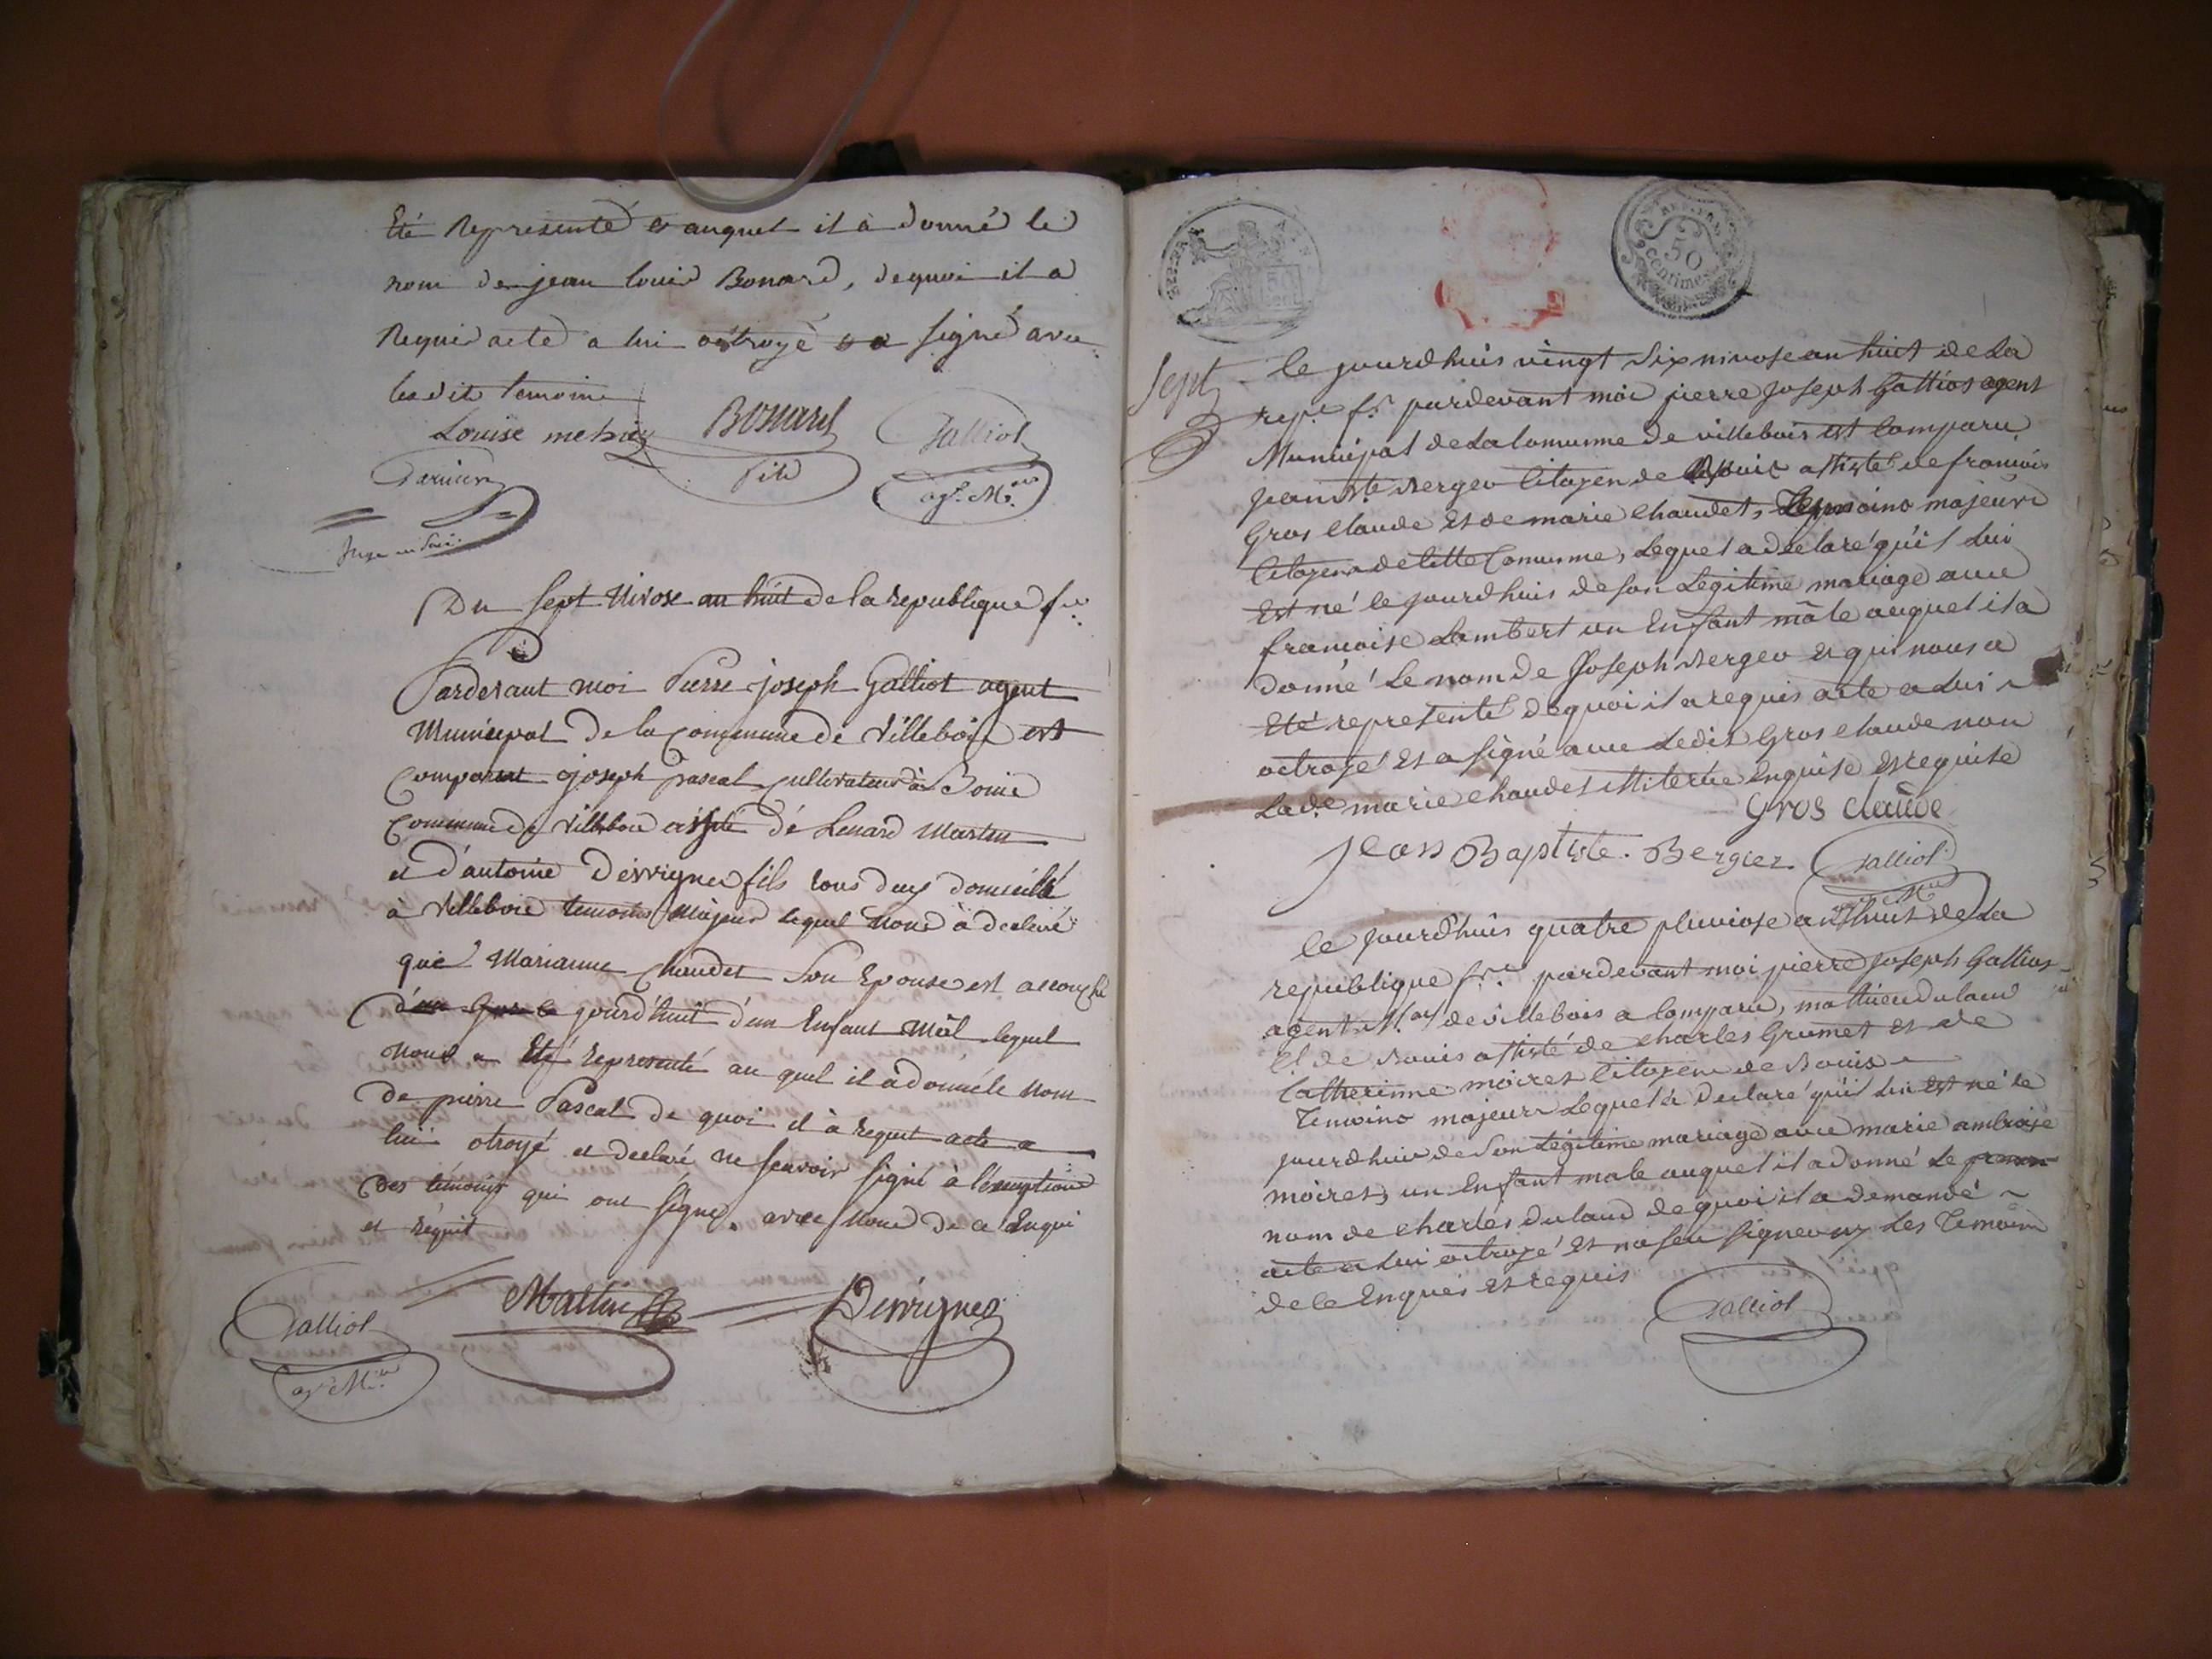 Eté Représenté & auquel il à donné le
nom de jean louis Bonard, de quoi il a
Requis acte a lui octroyé & a signé avec
lesdit temoins
Louise
Bonard
Galliot
ag.t M.al
Du sept Nivose an huit de la republique f.se
Pardevant moi Pierre joseph Galliot agent
Municipal de la Commune de Villebois est
Comparut joseph pascal Cultivateur à Bouis
Commune de Villebois assisté dé Lenard Martin
et d'antoine Dervignes fils tous deux domicillé
à Villebois temoins Majeurs lequel Nous à declaré
que Marianne Chaudet Son Epouse est accouché
jourd'huit d'un Enfant Mâl lequel
Nous a Eté representé au quel il à donné le Nom
de pierre Pascal de quoi il à Requit acte a
lui otroyé et declaré ne scavoir signé à l'exception
des témoins qui ont signé. avec Nous de ce Enqui
et Réquit
Galliot
ag.t M.al
Martin
Dervignes
50
centimes
Sept
le jourdhuis vingt six nivose an huit de La
rep.e f.se pardevant moi pierre Joseph Galliot agent
Municipal de La Comunne de villebois est Comparu
jean B.te Berger Citoyen de Bouis assisté de francois
Gros claude Et de marie chaudet, Temoins majeurs
Citoyens de Cette Comunne, Lequel a declaré qu'il Lui
Est né le jourdhuis de son Legitime mariage avec
francoise Lambert un Enfant mâle auquel il a
donné Le nom de Joseph Berger Et qui nous a
Eté representé de quoi il a requis acte a Lui
octroyé Et a signé avec Ledit Gros claude non
Lad.e marie chaudet illiterée Enquise Et requise
Gros claude
Jean Baptiste. Bergier
Galliot
le jourdhuis quatre pluviose an huit de La
republique f.se pardevant moi pierre Joseph Galliot
agent M.al de villebois a Comparu, mathieu dulaud
C. de Bouis assisté de charles Grumet Et de
Catherinne moiret Citoyens de Bouis
Temoins majeurs Lequel a declaré qu'il Lui Est né le
jourdhuis de Son Légitime mariage avec marie ambroise
moiret, un Enfant male auquel il a donné Le
nom de charles dulaud de quoi il a demandé
acte a Lui octroyé Et na seu signer ny Les Temoins
de ce Enquis Et requis
Galliot